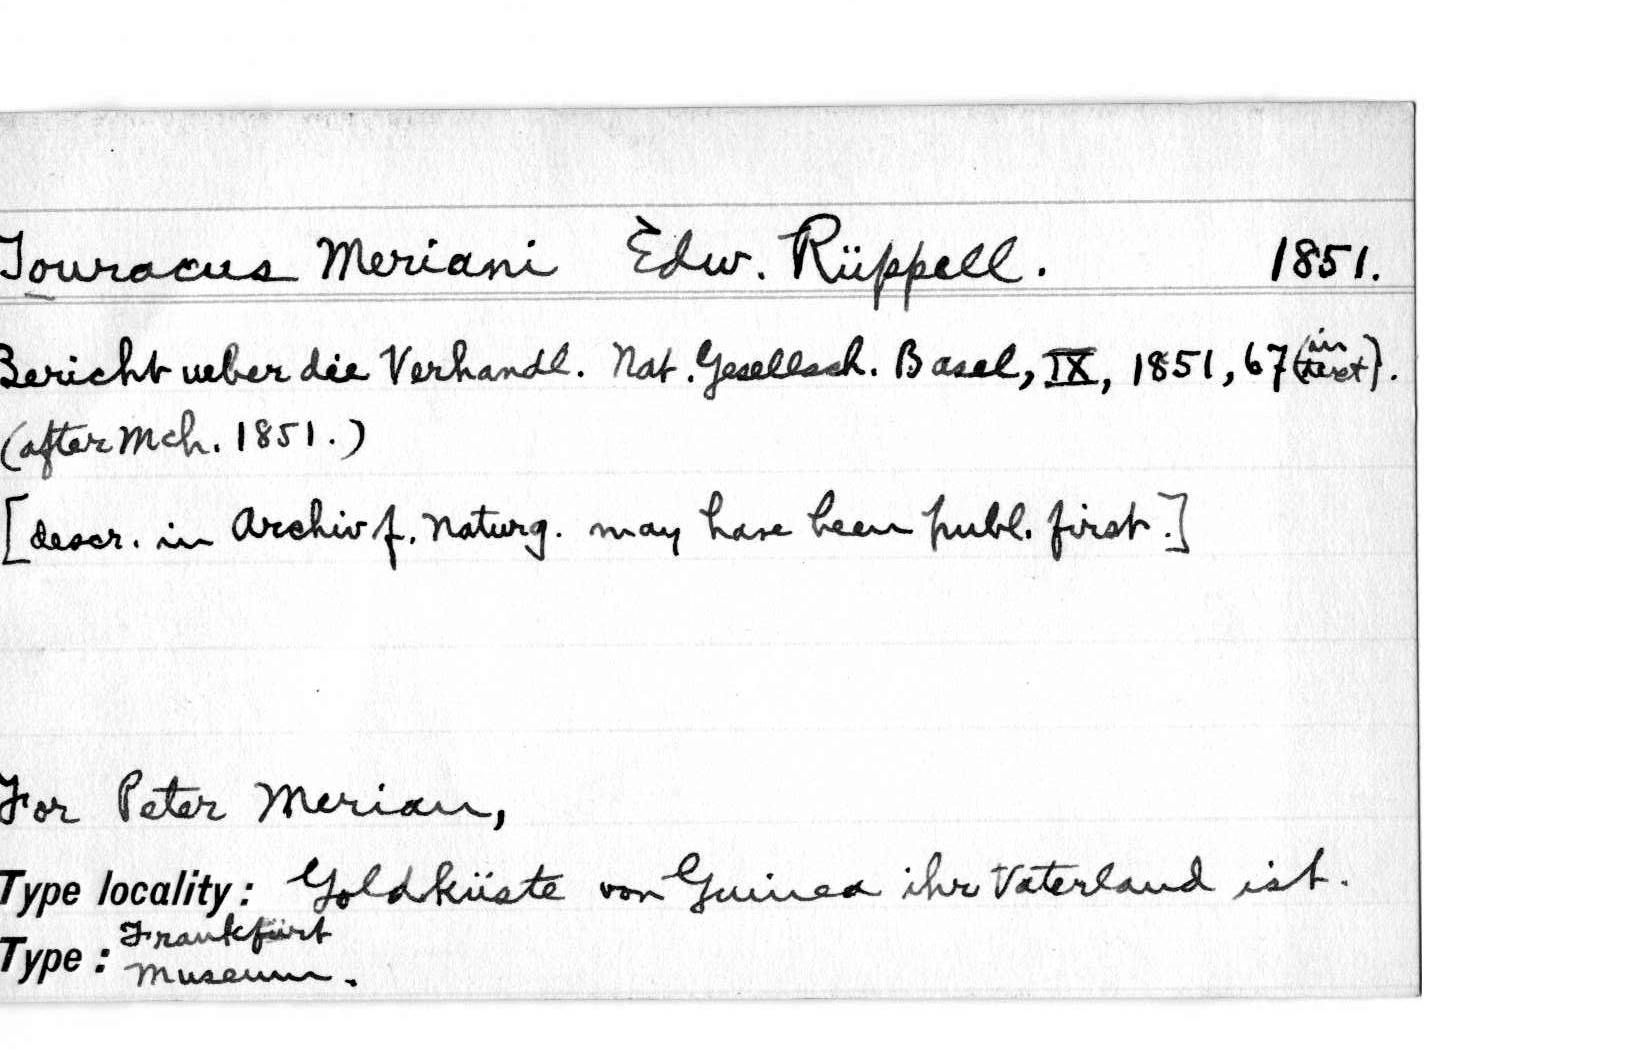 Touracus Meriani Edw. Rüppell. 1851.
Bericht ueber die Verhandl. Nat. Gesellsch. Basel, IX, 1851, 67 (in text).
(after Mch. 1851.)
[descr. in Archiv f. Naturg. may have been publ. first.]
For Peter Merian,
Type locality: Goldküste von Guinea ihr Vaterland ist.
Type: Frankfürt
Museum.